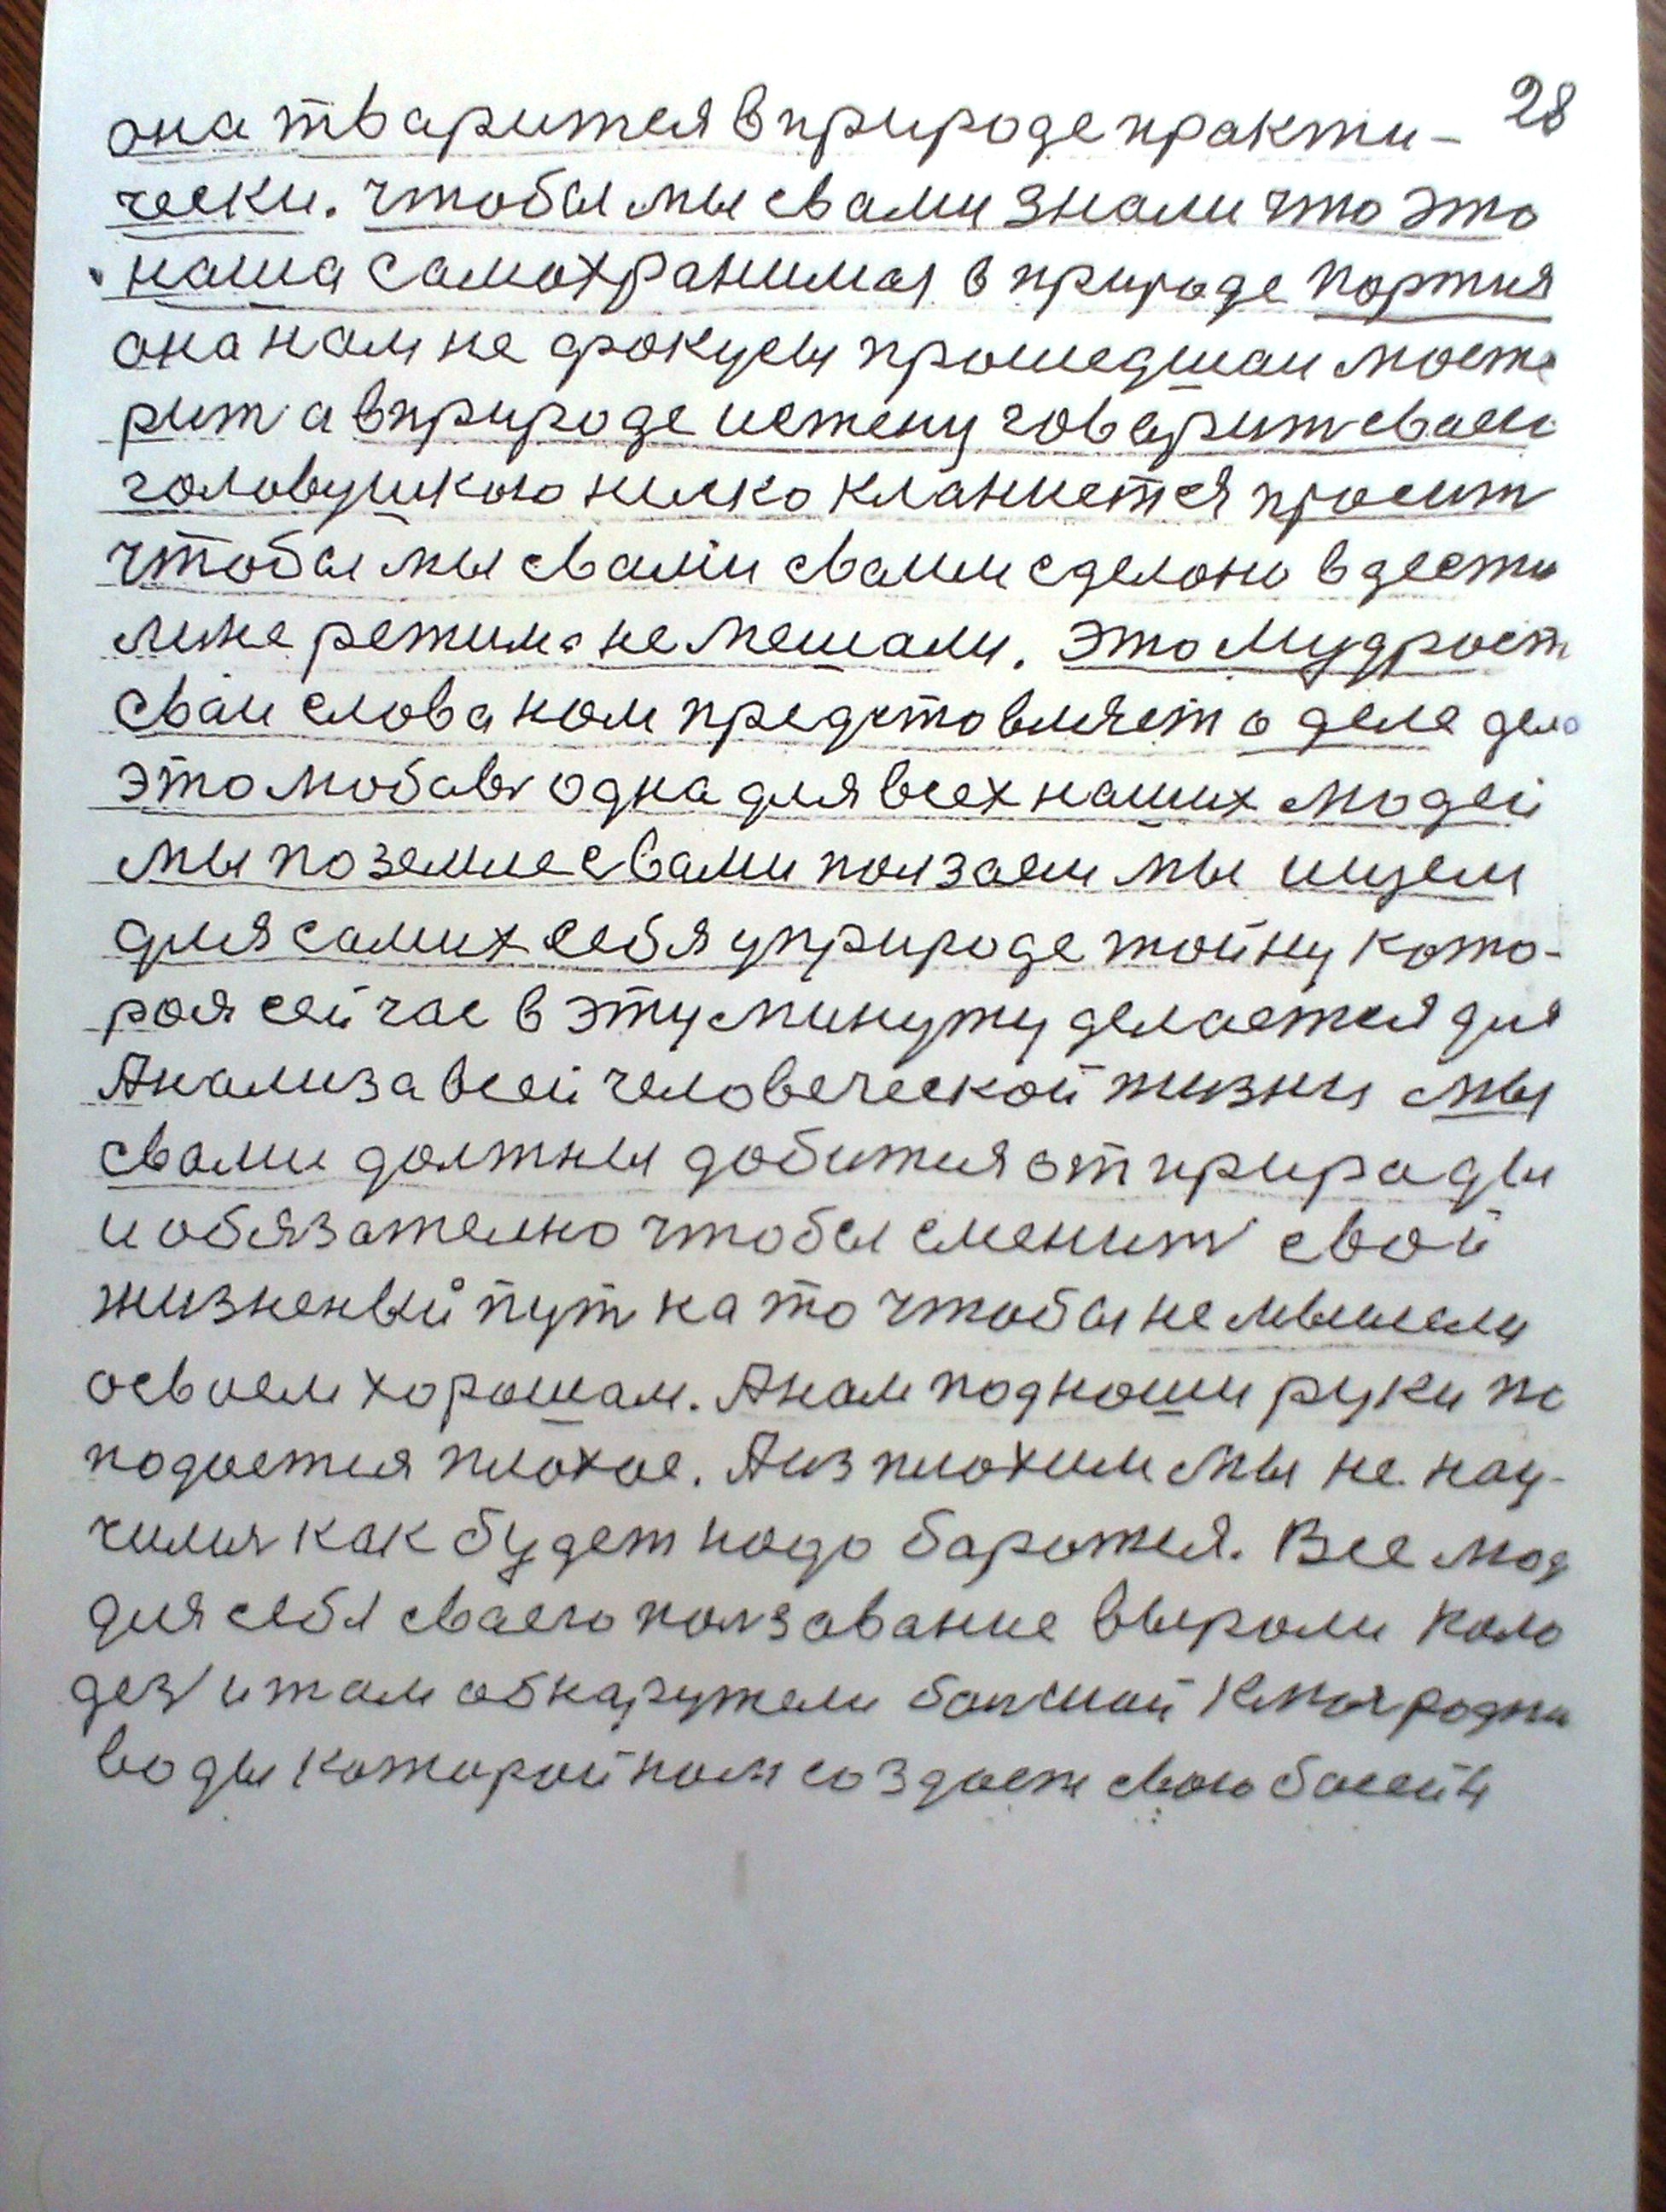 28
она тваритея в природе практи-
чески. чтобы мы свами знали что это
наша самохранимая в природе партия
она нам не фокусы прошедшаи масте
рит а вприроде истену говарит сваеи
головушкаю ниско кланиется просит
чтобы мы свами свами сделано в десты
лиже режима не мешали. Это мудрост
сваи слова нам представляет о деле дело
это любовь одна для всех наших людей
мы по земле свами ползаем мы ищем
для самих себя у природе тайну кото-
рая сейчас в эту минуту делается для
Анализа всей человеческой жизни мы
свами должны добится от природы
и обязателно чтобы сменит свой
жизненый пут на то чтобы не мышели
освоем хорошам. А нам подноши руки не
подается плохое. А из плохим мы не нау-
чился как будет надо баротся. Все люд
для себя сваего ползавание вырали коло
дез и там обнаружели болшой ключ родни
воды каторой нам создает свою басейн